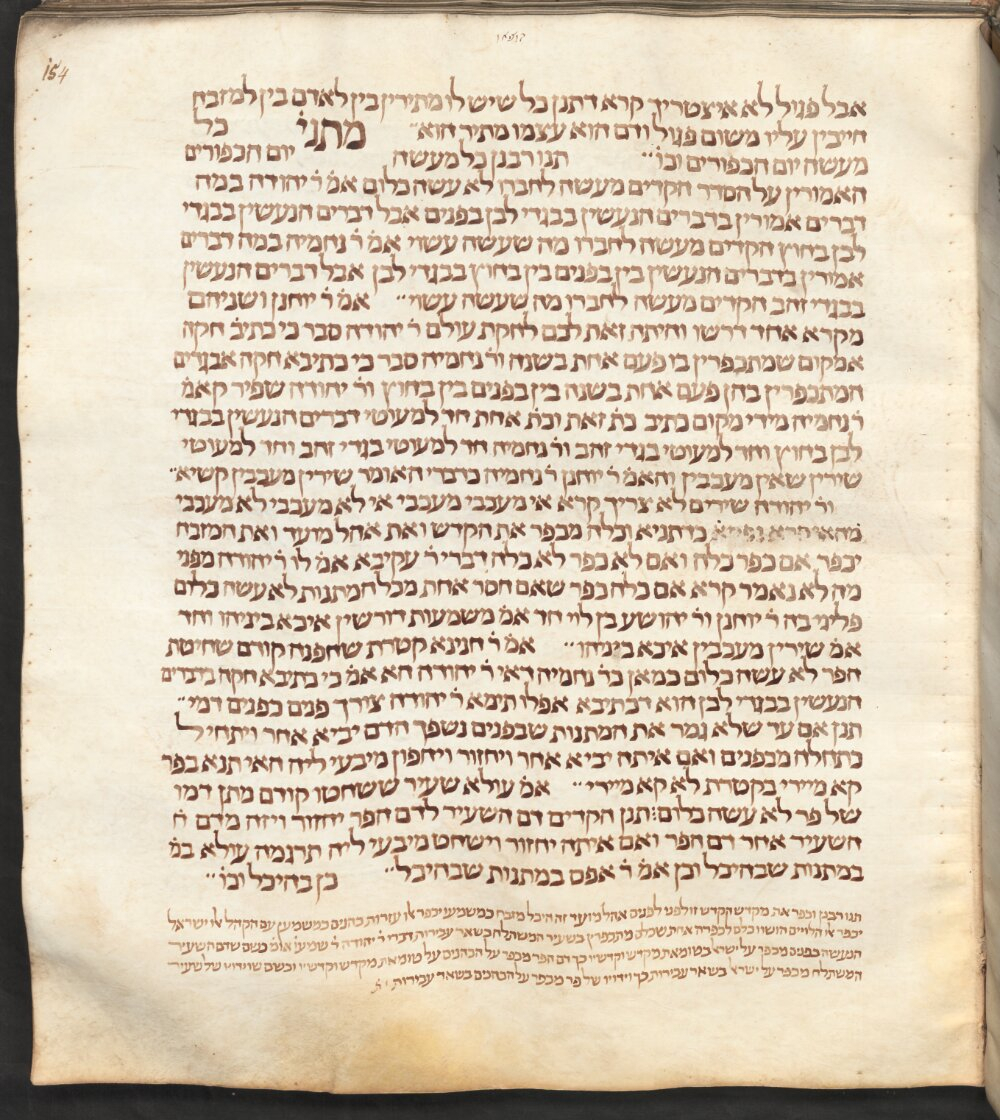 154
אבל פגול לא איצטריך קרא דתנן כל שיש לו מתירין בין לאדם בין למזבח
חייבין עליו משום פגול ודם הוא עצמו מתיר הוא׳׳ מתני׳ כל
מעשה יום הכפורים וכו׳׳׳ תנו רבנן כל מעשה יום הכפורים
האמורין על הסדר הקדים מעשה לחברו לא עשה כלום אמ׳ ר׳ יהודה במה
דברים אמורין בדברים הנעשין בבגדי לבן בפנים אבל דברים הנעשין בבגדי
לבן בחוץ הקדים מעשה לחברו מה שעשה עשוי אמ׳ ר׳ נחמיה במה דברים
אמורין בדברים הנעשין בין בפנים בין בחוץ בבגדי לבן אבל דברים הנעשין
בבגדי זהב הקדים מעשה לחברו מה שעשה עשוי׳׳ אמ׳ ר׳ יוחנן ושניהם
מקרא אחד דרשו והיתה זאת לכם לחקת עולם ר׳ יהודה סבר כי כתיב׳ חקה
אמקום שמתכפרין בו פעם אחת בשנה ור׳ נחמיה סבר כי כתיבא חקה אבגדים
המתכפרין בהן פעם אחת בשנה בין בפנים בין בחוץ ור׳ יהודה שפיר קאמ׳
ר׳ נחמיה מידי מקום כתיב כת׳ זאת וכת׳ אחת חד למעוטי דברים הנעשין בבגדי
לבן בחוץ וחד למעוטי בגדי זהב ור׳ נחמיה חד למעוטי בגדי זהב וחד למעוטי
שירין שאין מעכבין והאמ׳ ר׳ יוחנן ר׳ נחמיה כדברי האומר שירין מעכבין קשיא׳׳
ור׳ יהודה שירים לא צריך קרא אי מעכבי מעכבי אי לא מעכבי לא מעכבי
כדתניא וכלה מכפר את הקדש ואת אהל מועד ואת המזבח
יכפר אם כפר כלה ואם לא כפר לא כלה דברי ר׳ עקיבא אמ׳ לו ר׳ יהודה מפני
מה לא נאמר קרא אם כלה כפר שאם חסר אחת מכל המתנות לא עשה כלום
פליגי בה ר׳ יוחנן ור׳ יהושע בן לוי חד אמ׳ משמעות דורשין איכא ביניהו וחד
אמ׳ שירין מעכבין איכא ביניהו׳׳ אמ׳ ר׳ חנינא קטרת שחפנה קודם שחיטת
הפר לא עשה כלום כמאן כר׳ נחמיה דאי ר׳ יהודה הא אמ׳ כי כתיבא חקה בדברים
הנעשין בבגדי לבן הוא דכתיבא אפלו תימא ר׳ יהודה צורך פנים כפנים דמי׳׳
תנן אם עד שלא גמר את המתנות שבפנים נשפך הדם יביא אחר ויתחיל
כתחלה מבפנים ואם איתה יביא אחר ויחזור ויחפון מיבעי ליה האי תנא בפר
קא מיירי בקטרת לא קא מיירי׳׳ אמ׳ עולא שעיר ששחטו קודם מתן דמו
של פר לא עשה כלום: תנן הקדים דם השעיר לדם הפר יחזור ויזה מדם ה
השעיר אחר דם הפר ואם איתה יחזור וישחט מיבעי ליה תרגמה עולא במ׳
במתנות שבהיכל וכן אמ׳ ר׳ אפס במתנות שבהיכל׳׳ כן בהיכל וכו׳׳׳
תנו רבנן וכפר את מקדש הקדש זו לפני לפנים אהל מועד זה היכל מזבח כמשמעו יכפר אלו עזרות כהנים כמשמען עם הקהל אלו ישראל
יכפר אלו הלויים הושוו כלם לכפרה אחת שכלם מתכפרין בשעיר המשתלח בשאר עבירות דברי ר׳ יהודה ר׳ שמעון אומ׳ כשם שדם השעיר
הנעשה בפנים מכפר על ישר׳ בטומאת מקדש וקדשיו כך דם הפר מכפר על הכהנים על טומאת מקדש וקדשיו וכשם שוידויו של שעיר
המשתלח מכפר על ישר׳ בשאר עבירות כך וידויו של פר מכפר על הכהנים בשאר עבירות